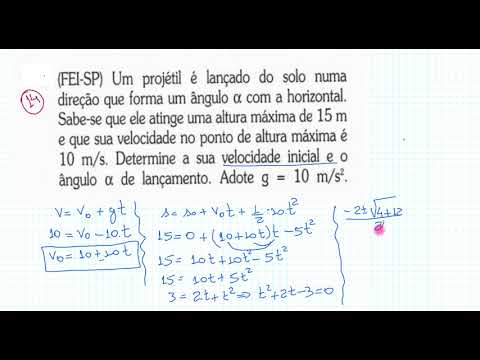 14
(FEI-SP) Um projétil é lançado do solo numa
direção que forma um ângulo α com a horizontal.
Sabe-se que ele atinge uma altura máxima de 15 m
e que sua velocidade no ponto de altura máxima é
10 m/s. Determine a sua velocidade inicial e o
ângulo α de lançamento. Adote g = 10 m/s².
v = v₀ + gt
10 = v₀ - 10.t
v₀ = 10 + 10t
s = s₀ + v₀t + 1/2 .10.t²
15 = 0 + (10+10t)t - 5t²
15 = 10t + 10t² - 5t²
15 = 10t + 5t²
3 = 2t + t² ⇒ t² + 2t - 3 = 0
-2 ± √4+12
2